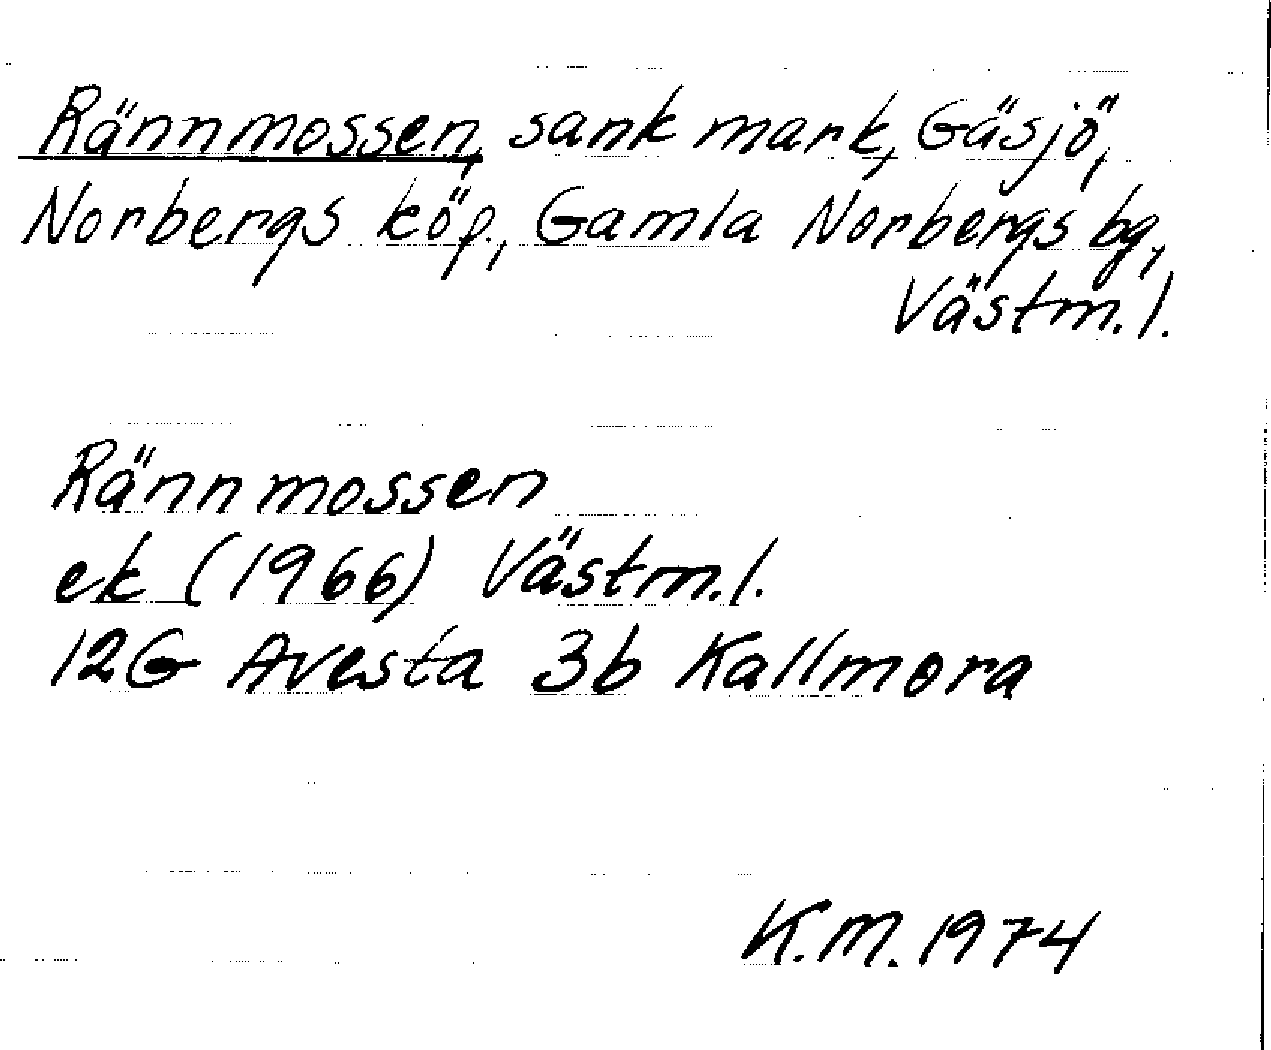 Rännmossen, sank mark, Gäsjö,
Norbergs köp., Gamla Norbergs bg,
Västm. l.
Rännmossen
ek (1966) Västm. l.
12G Avesta 3b Kallmora
K.M. 1974